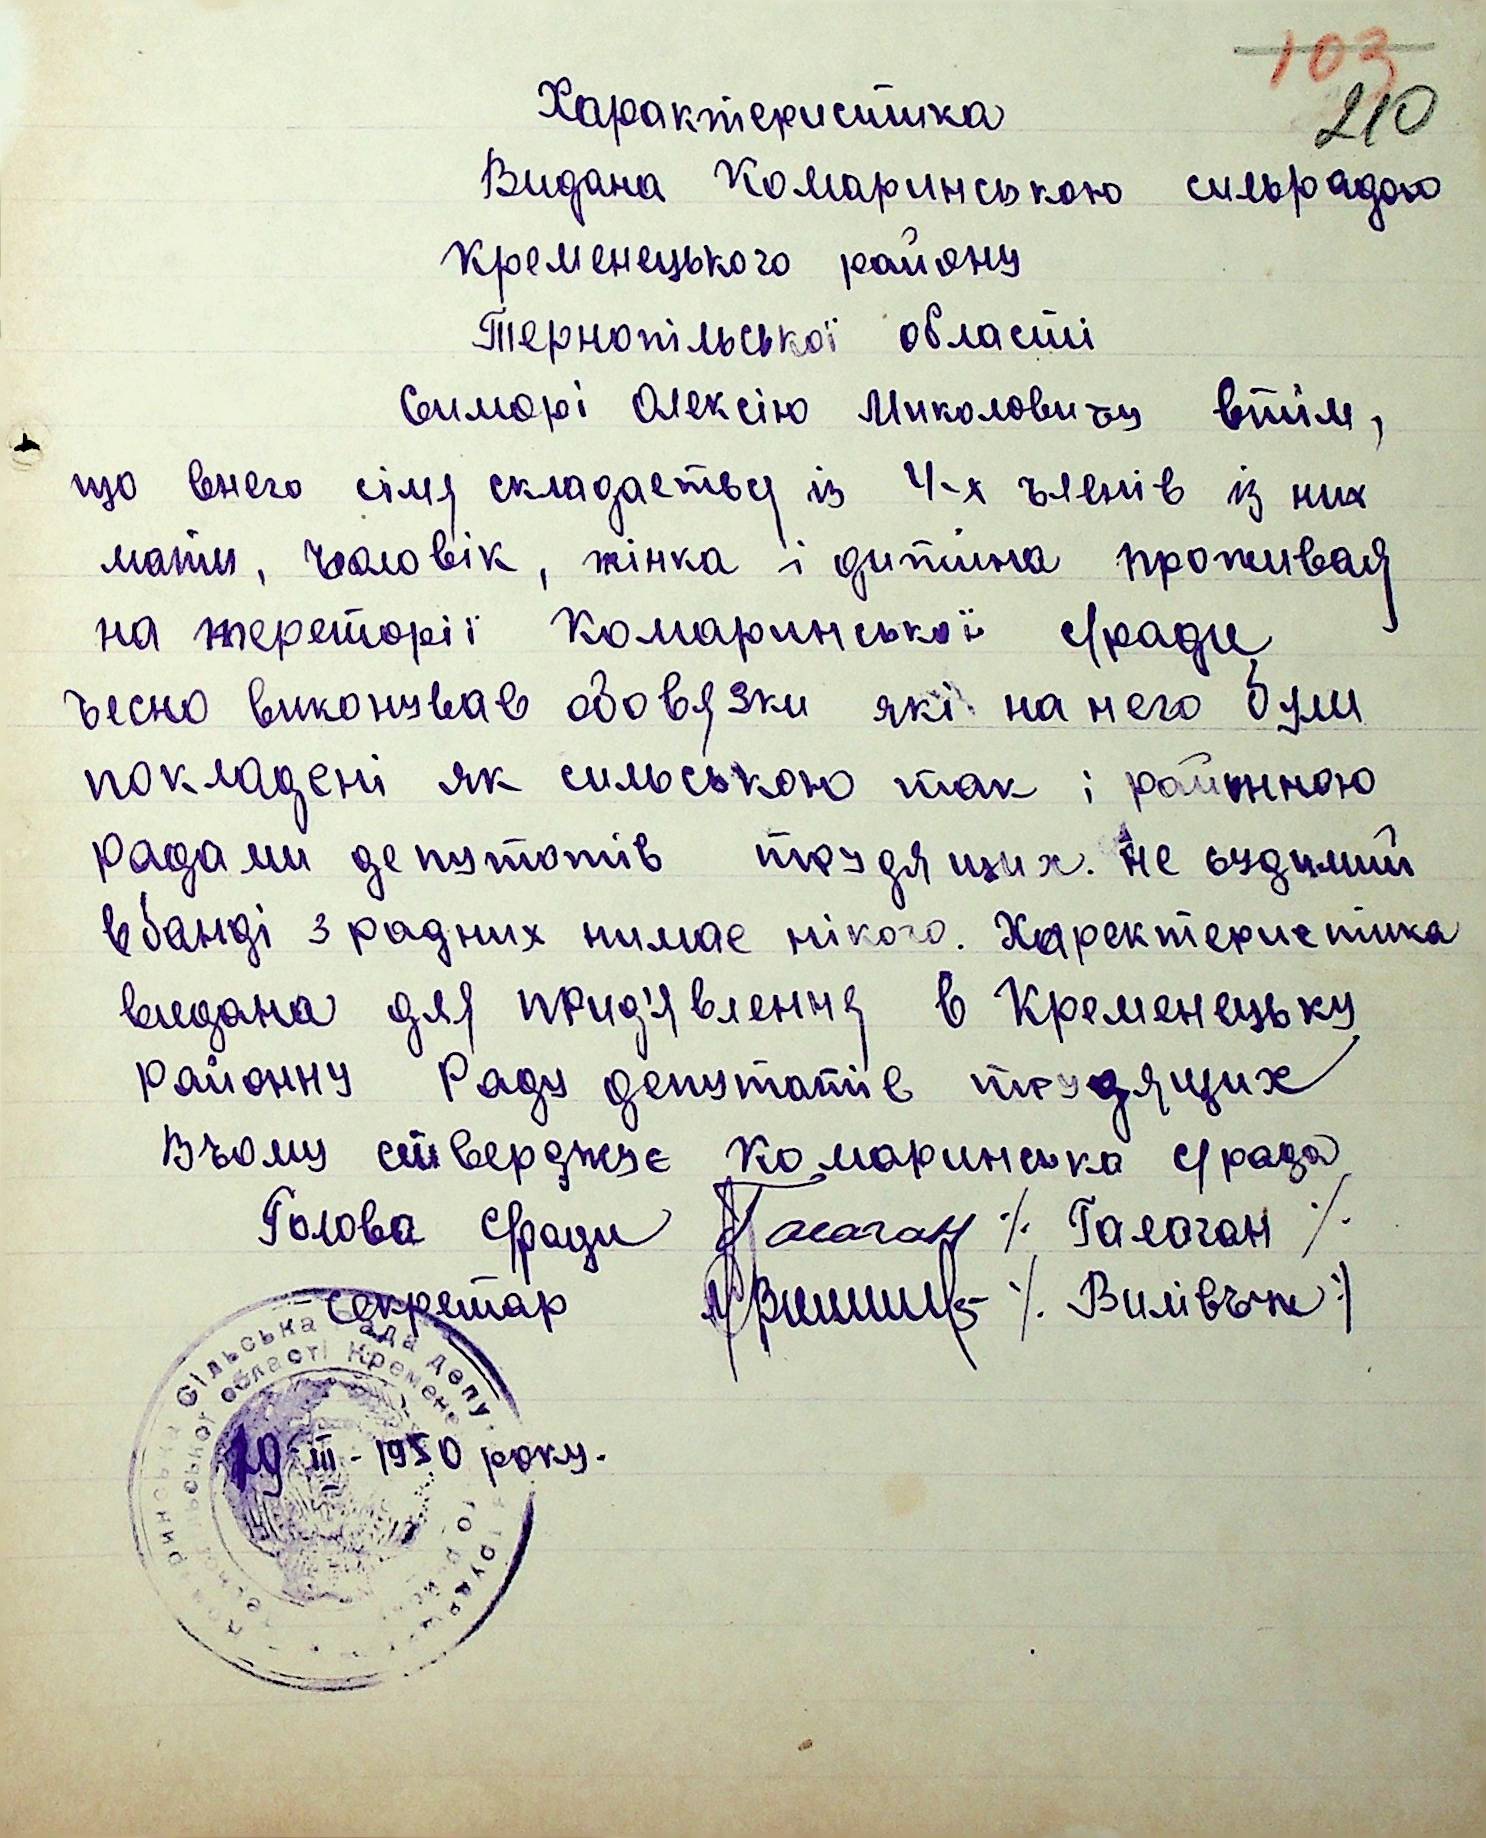 103
210
Характеристика
Видана Комаринською сильрадою
Кременецького району
Тернопільської області
Симорі Олексію Миколовичу втім,
що внего сімя складаеться із 4-х членів із них
мати, чоловік, жінка і дитина проживая
на тереторії Комаринської с/ради
чесно виконував обовязки які на него були
покладені як сильською так і районною
радами депутатів трудящих. Не судимий
в банді з радних нимає нікого. Характеристика
видана для придʼявлення в Кременецьку
районну Раду депутатів трудящих
Вчому стверджує Комаринська с/рада
Голова с/ради Галаган /. Галаган /.
секретар /. Вилівчж /
Сільська Рада депу
області Кремене
19-III-1950 року.